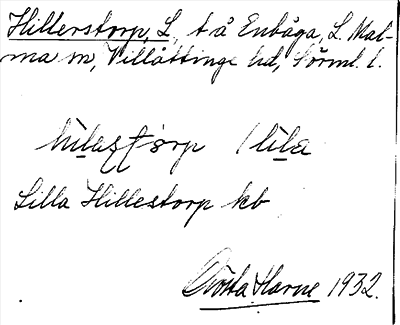 Hillerstorp, L., t å Enbåga, L. Mal-
ma sn, Villåttinge hd, Sörml. l.
lilla
Lilla Hillestorp kb
Gösta Harne 1932.